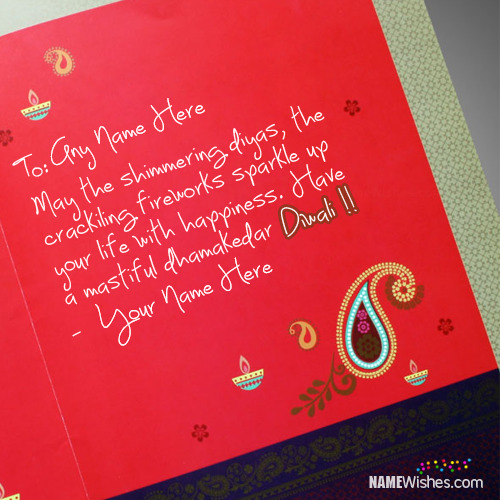 To: Any Name Here
May the shimmering diyas, the
crackiling fireworks sparkle up
your life with happiness. Have
a mastiful dhamakedar Diwali !!
- Your Name Here
NAMEWishes.com